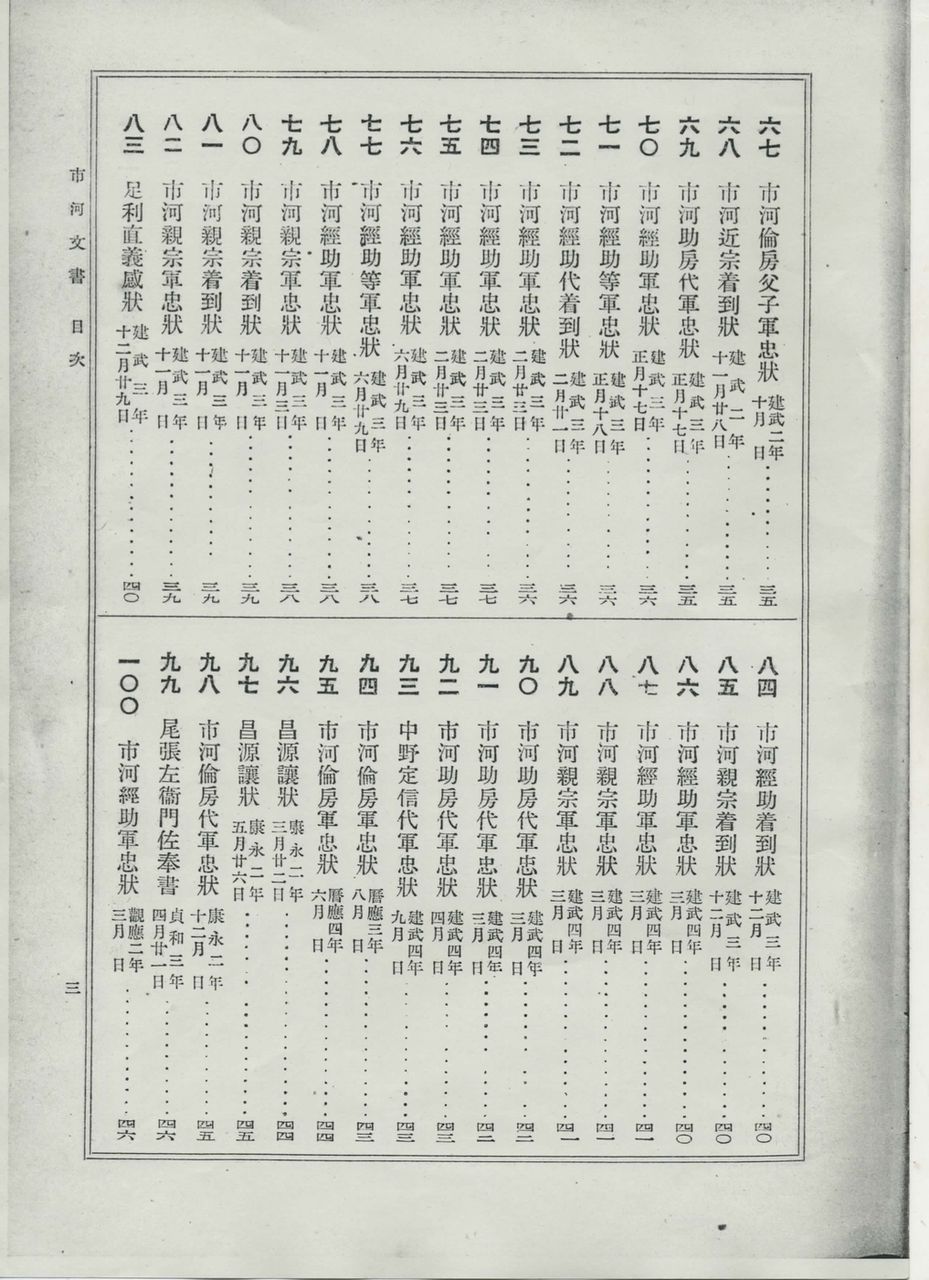 六七 市河倫房父子軍忠狀 建武二年十月 日 三五
六八 市河近宗着到狀 建武二年十一月廿八日 三五
六九 市河助房代軍忠狀 建武三年正月十七日 三五
七〇 市河經助軍忠狀 建武三年正月十七日 三六
七一 市河經助等軍忠狀 建武三年正月十八日 三六
七二 市河經助代着到狀 建武三年二月廿一日 三六
七三 市河經助軍忠狀 建武三年二月廿三日 三六
七四 市河經助軍忠狀 建武三年二月廿三日 三七
七五 市河經助軍忠狀 建武三年二月廿三日 三七
七六 市河經助軍忠狀 建武三年六月廿九日 三七
七七 市河經助等軍忠狀 建武三年六月廿九日 三八
七八 市河經助軍忠狀 建武三年十一月 日 三八
七九 市河親宗軍忠狀 建武三年十一月三日 三八
八〇 市河親宗着到狀 建武三年十一月 日 三九
八一 市河親宗着到狀 建武三年十一月 日 三九
八二 市河親宗軍忠狀 建武三年十一月 日 三九
八三 足利直義感狀 建武三年十二月廿九日 四〇
八四 市河經助着到狀 建武三年十二月 日 四〇
八五 市河親宗着到狀 建武三年十二月 日 四〇
八六 市河經助軍忠狀 建武四年三月 日 四〇
八七 市河經助軍忠狀 建武四年三月 日 四一
八八 市河親宗軍忠狀 建武四年三月 日 四一
八九 市河親宗軍忠狀 建武四年三月 日 四一
九〇 市河助房代軍忠狀 建武四年三月 日 四二
九一 市河助房代軍忠狀 建武四年三月 日 四二
九二 市河助房代軍忠狀 建武四年四月 日 四三
九三 中野定信代軍忠狀 建武四年九月 日 四三
九四 市河倫房軍忠狀 曆應三年八月 日 四三
九五 市河倫房軍忠狀 曆應四年六月 日 四四
九六 昌源讓狀 康永二年三月廿二日 四四
九七 昌源讓狀 康永二年五月廿六日 四五
九八 市河倫房代軍忠狀 康永二年十二月 日 四五
九九 尾張左衞門佐奉書 貞和三年四月廿一日 四六
一〇〇 市河經助軍忠狀 觀應二年三月 日 四六
市河文書 目次
三